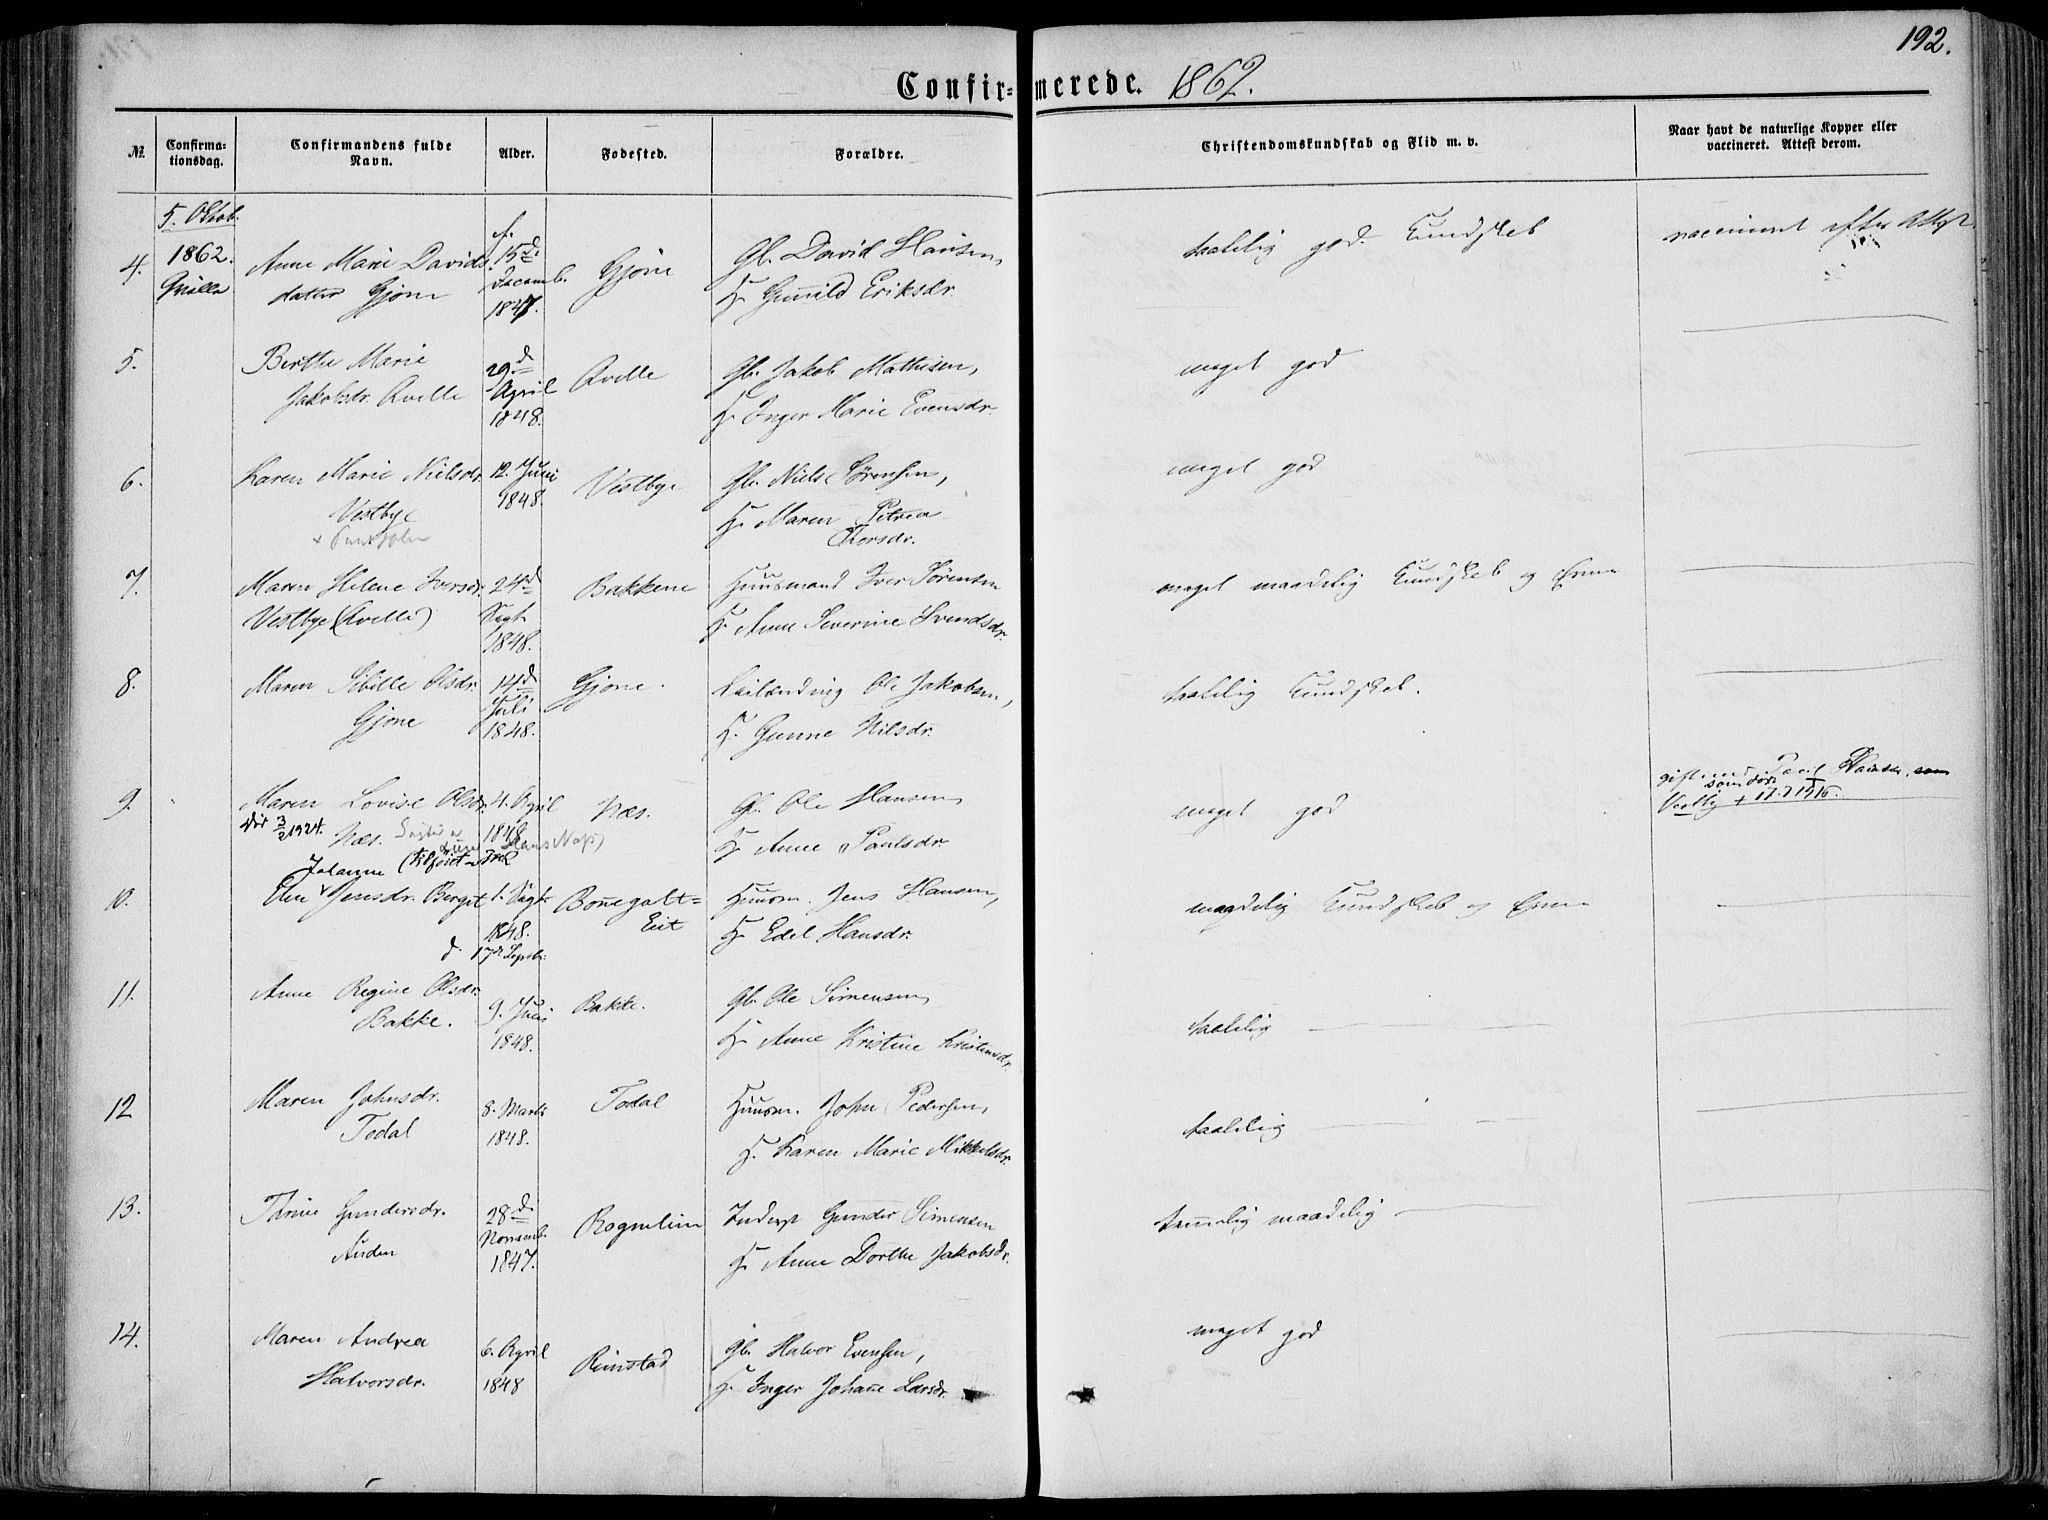 192.
Confirmerede. 1862.
№
Confirmationsdag.
Confirmandens fulde Navn.
Alder.
Fodested.
Forældre.
Christendomskundskab og Flid m. v.
Naar havt de naturlige Kopper eller vaccineret. Attest derom.
5. Oktob.
1862.
4.
Anne Marie Davids
datter Gjone
f.
15d
Decemb.
1847.
Gjone
Gb. David Hansen,
H. Gunild Eriksdr.
taalelig god Kundskab
vaccineret efter Attest
5.
Berthe Marie
Jakobsdr. Qvelle
29d
April
1848.
Qvelle
Gb. Jakob Mathisen,
H. Inger Marie Evensdr.
meget god
6.
Karen Marie Nielsdr.
Vestbye
12. Juni
1848.
Vestbye
Gb. Niels Sørensen,
H. Maren Petrea
Thorsdr.
meget god
7.
Maren Helene Iversdr.
Vestbye (Qvelle)
24d
Sept
1848.
Bakkene
Huusmand Iver Sørensen
H. Anne Severine Svendsdr.
meget maadelig Kundskab og Evne
8.
Maren Sibille Olsdr.
Gjone
14d
Juli
1848.
Gjone.
Leilænding Ole Jakobsen,
H. Gunne Nilsdr.
taalelig Kundskab.
9.
Maren Lovise Olsdr.
død 3/2 1924.
Næs.
4. April
1848
Næs.
Gb. Ole Hansen
H. Anne Paulsdr.
meget god
gift med Paul Hansen
som døde
Vestby + 17.7 1916.
Johanne (tilføiet
10.
Elen Jensdr. Berget
1. Sept
1848.
d. 17de Septbr.
Bonegolt=
Eiet
Huusm. Jens Hansen,
H. Edel Hansdr.
maadelig Kundskab og Evne
11.
Anne Regine Olsdr.
Bakke.
9. Juni
1848.
Bakke.
Gb. Ole Simensen
H. Anne Kristine Kristensdr.
taalelig
12
Maren Johnsdr.
Todal
8. Marts
1848.
Todal
Huusm. John Pedersen,
H. Karen Marie Mikkelsdr.
taalelig
13.
Thrine Gundersdr.
Auden
28d
Novemb.
1847.
Rognelien
Inderst Gunder Simensen
H. Anne Dorthe Jakobsdr.
temmelig maadelig
14.
Maren Andrea
Halvorsdr.
6. April
1848
Rimstad
Gb. Halvor Evensen,
H. Inger Johane Larsdr.
meget god